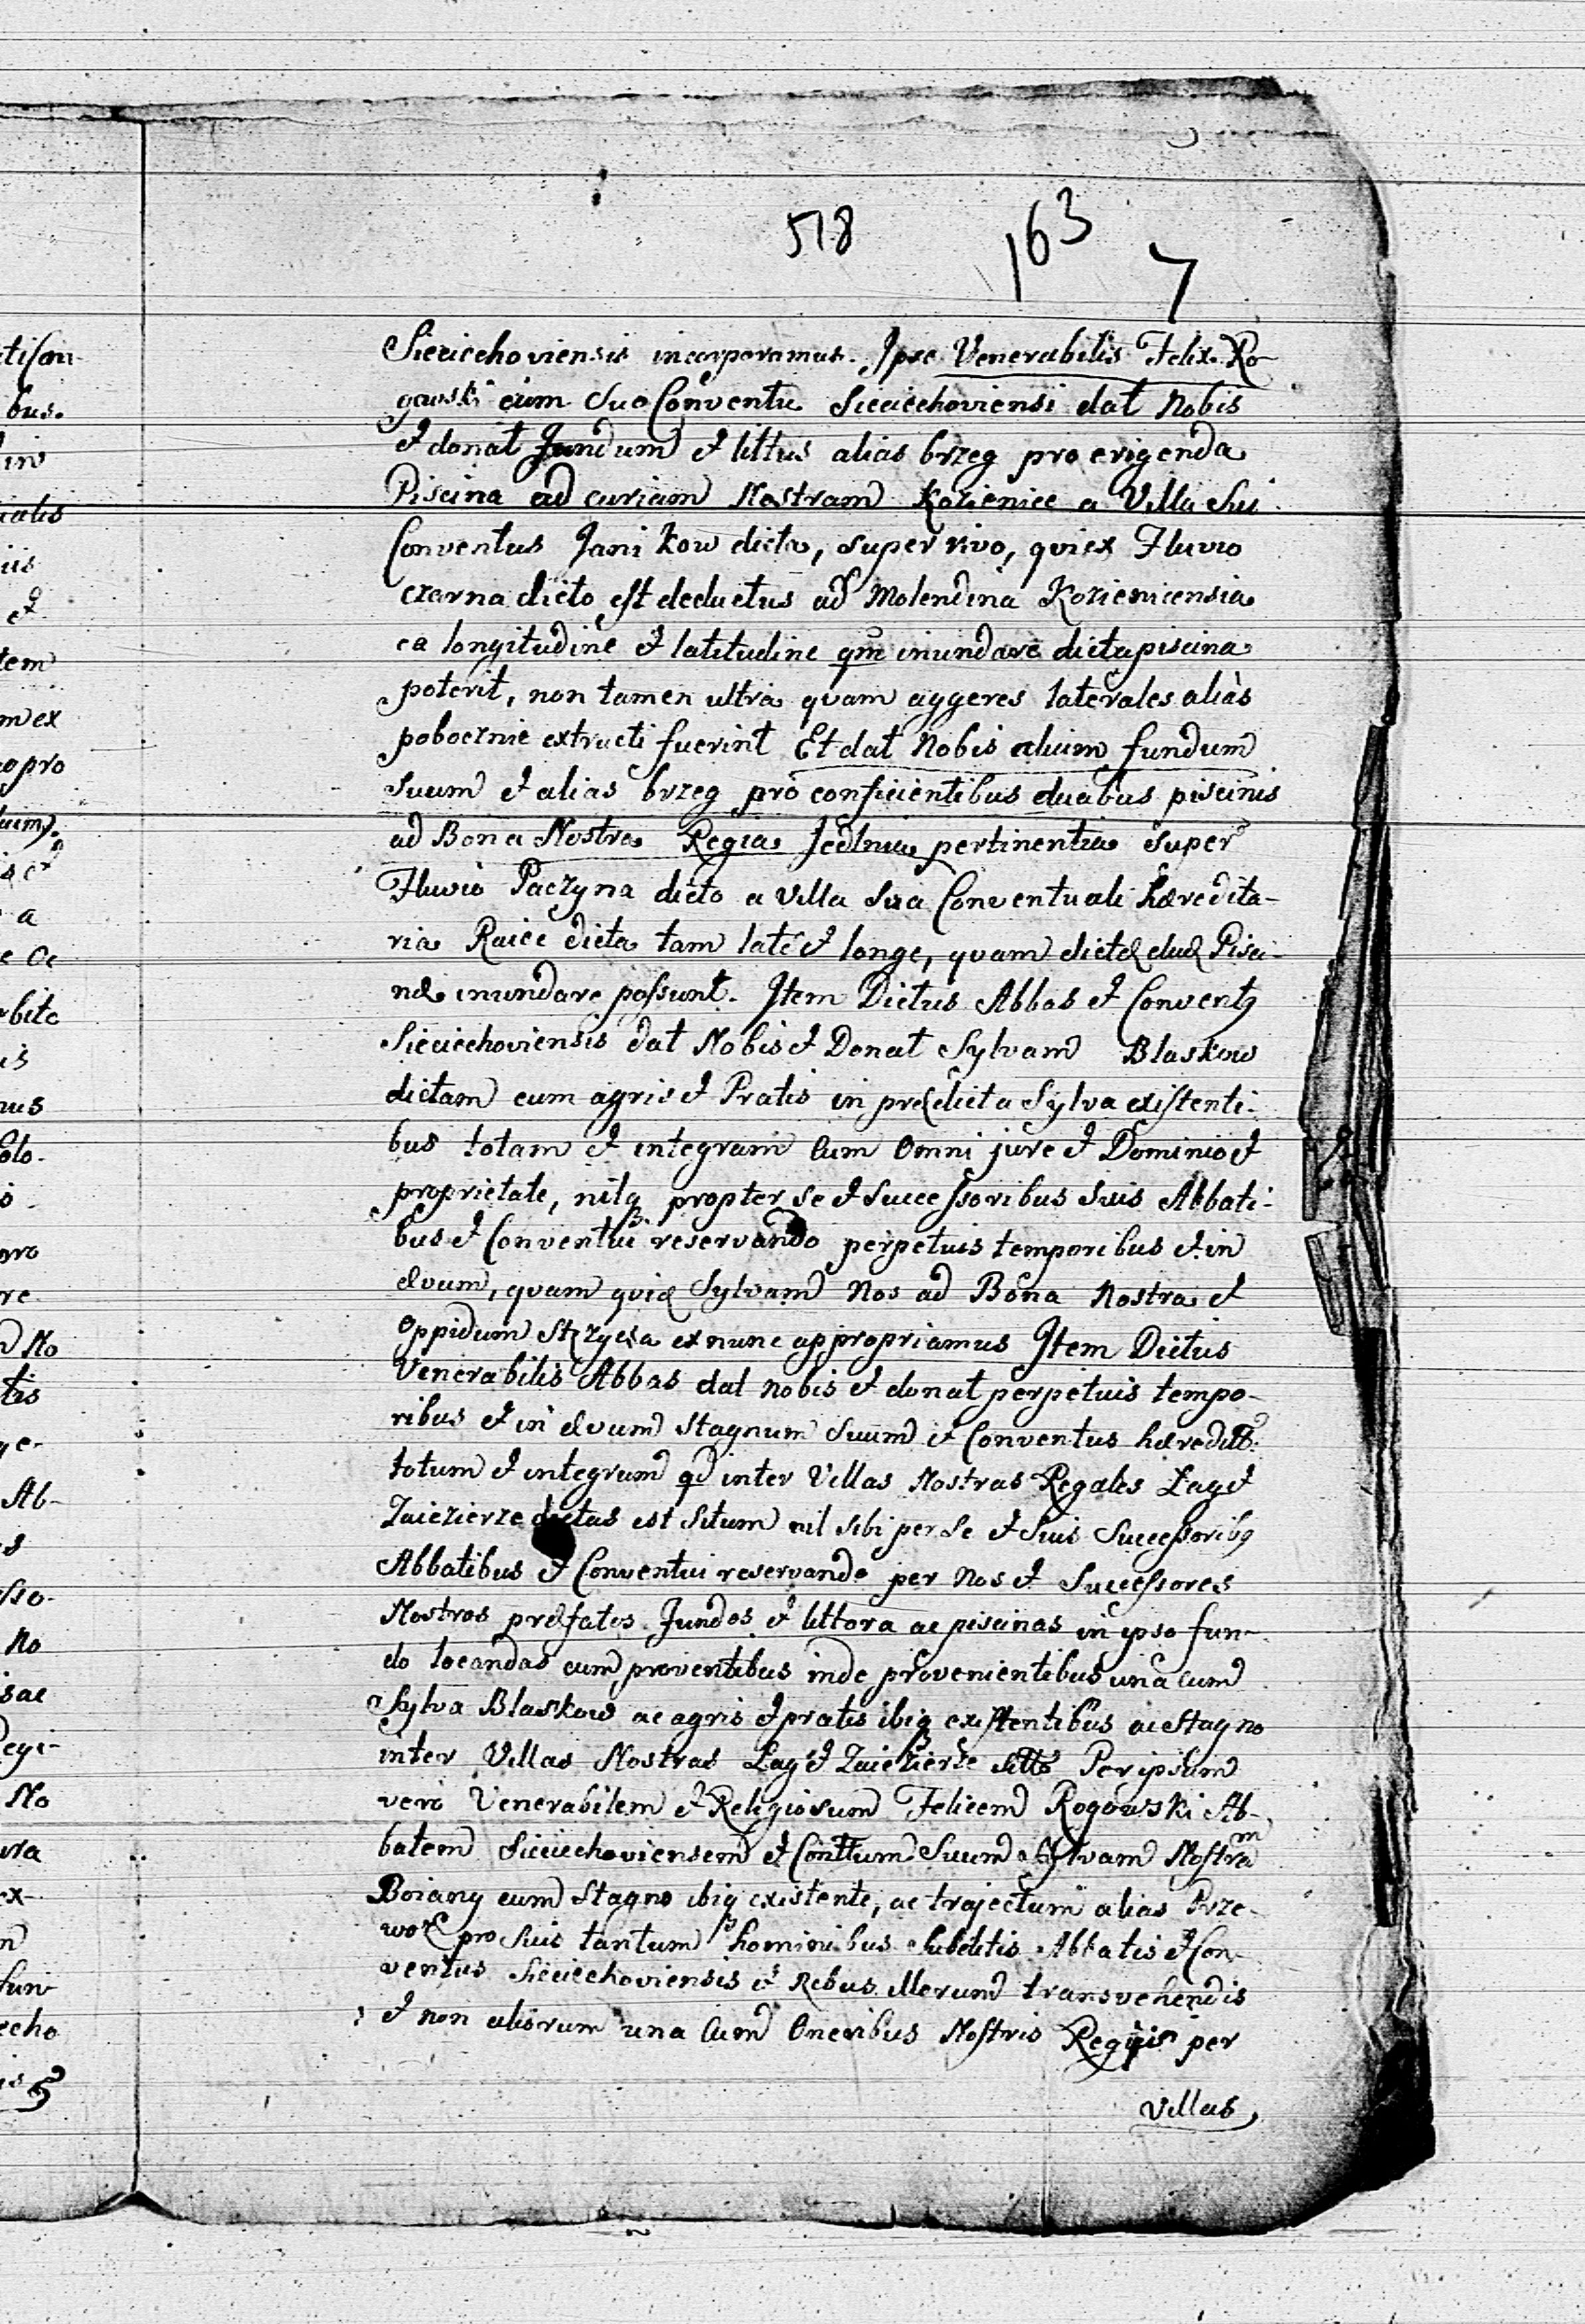 518 163 7
Sieciechoviensis incorporamus. Ipse Venerabilis Felix Ro-
gowski cum Suo Conventu Sieciechoviensi dat Nobis
et donat Fundum et littus alias brzeg pro erigenda
Piscina ad curiam Nostram Kozienice a Villa Sui
Conventus Janikow dicta, super rivo, qui ex Fluvio
czarna dicto est deductus ad Molendina Kozienicensia
ea longitudine et latitudine qm inundare dicta piscina
poterit, non tamen ultra quam aggeres laterales aliàs
pobocznie extructi fuerint Et dat Nobis alium fundum
Suum et alias brzeg pro conficientibus duabus piscinis
ad Bona Nostra Regia Jedlnia pertinentia super
Fluvio Paczyna dicto a Villa Sua Conventuali hæredita-
ria Raice dicta tam late et longe, quam dictæ duæ Pisci-
næ inundare possunt. Item Dictus Abbas et Conventq
Sieciechoviensis dat Nobis et Donat Sylvam Blaskow
dictam cum agris et Pratis in prædicta Sylva existenti-
bus totam et integram Cum Omni jure et Dominio et
proprietate, nilq propter se et Successoribus Suis Abbati-
bus et Conventui reservando perpetuis temporibus et in
ævum, quam quidem Sylvam Nos ad Bona Nostra et
Oppidum Strzycza ex nunc appropriamus Item Dictus
Venerabilis Abbas dat nobis et donat perpetuis tempo-
ribus et in ævum Stagnum Suum et Conventus hæredit:
totum et integrum qd inter Villas Nostras Regales Lag et
Zaiezierze dictas est situm nil sibi per Se et Suis Successoribq
Abbatibus et Conventui reservando per Nos et Successores
Nostros præfatos Fundos et littora ac piscinas in ipso fun-
do locandas cum proventibus inde provenientibus una cum
Sylva Blaskow ac agris et pratis ibiq existentibus ac Stagno
inter Villas Nostras Lag et Zaiezierze sitto Per ipsum
vero Venerabilem et Religiosum Felicem Rogowski Ab-
batem Sieciechoviensem et Conttum Suum Sylvam Nostram
Boiany cum Stagno ibiq existente, ac trajectum alias Prze-
woz pro Suis tantum hominibus Subditis Abbatis et Con-
ventus Sieciechoviensis et Rebus illorum transvehendis
et non aliorum una Cum Oneribus Nostris Regiis per
Villas